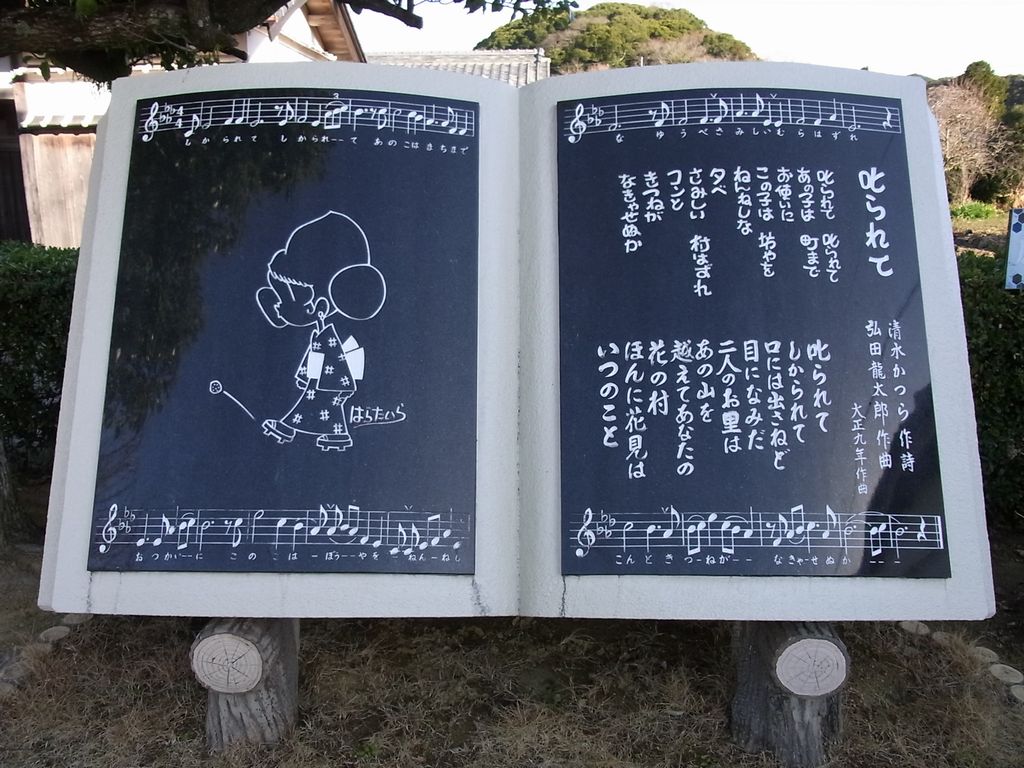 しかられて しかられーーて あのこは まちまで
はらたいら
おつかいーーに このこはーぼうーーやをーねんーねし
なゆうべさみしいむらはずれ
叱られて
清水かつら 作詩
弘田龍太郎 作曲
大正九年作曲
叱られて 叱られて
あの子は 町まで
お使いに
この子は 坊やを
ねんねしな
夕べ
さみしい 村はずれ
コンと
きつねが
なきゃせぬか
叱られて
しかられて
口には出さねど
目になみだ
二人のお里は
あの山を
越えてあなたの
花の村
ほんに花見は
いつのこと
こんときつーねがーー なきゃーせぬかーーー